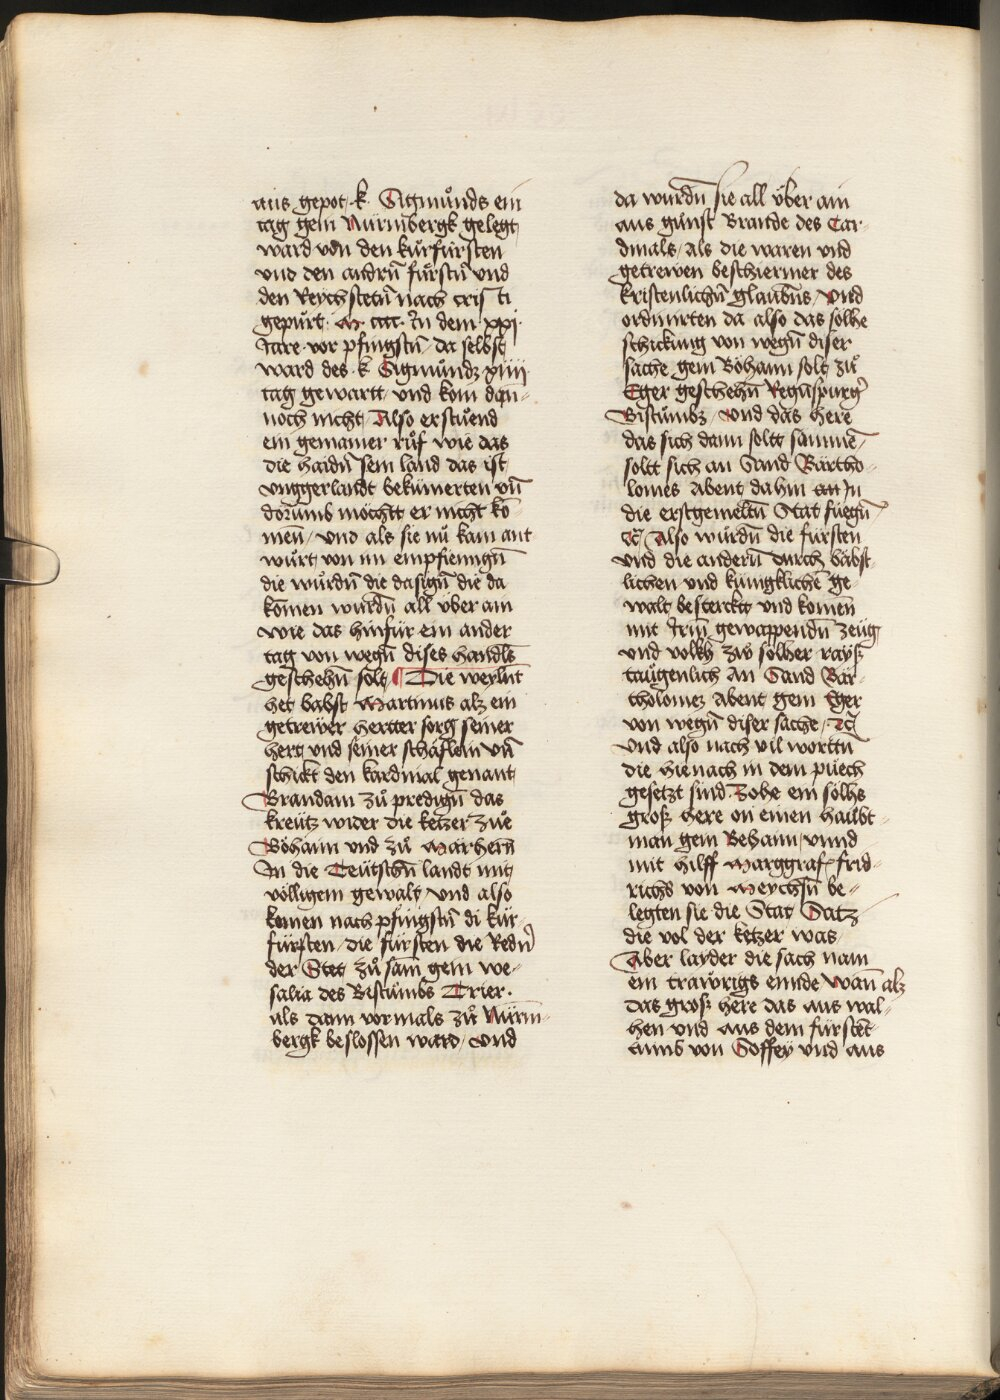 aus gepot k Sigmůnds ein
tag gein Nürmbergk gelegt
ward von den kurfürsten
vnd den andrn̄ fürstn̄ vnd
den Reychstetn̄ nach cristi
gepürt M cccc In dem xxj
Jare vor pfingstn̄ da selbst
ward des k Sigmůndz xiiii
tag gewartt vnd kom dan-
noch nicht Also erstůend
ein gemainer růf wie das
die haidn̄ sein land das ist
vnggerlandt bekümerten vn̄
dorumb mochtt er nicht ko-
men̄ vnd als sie nů kain ant
wůrt von im empfienngn̄
die wůrdn̄ die dasign̄ die da
komen wurdn̄ all über ain
wie das hinfür ein ander
tag von wegn̄ dises handls
geschehn̄ solt Die weylnt
het babst Martinus alz ein
getrewer herter sorg seiner
hert vnd seiner schaflein vn̄
schickt den kardinal genant
Brandam zů predign̄ das
kreütz wider die ketzer zue
Böhaim vnd zů Märhern̄
In die Teütschn̄ landt mit
völligem gewalt vnd also
komen nach pfingstn̄ di kur-
fürsten die fürsten die Redn̄
der Stet zů sam gein we-
salia des Bistumbs Trier
als dann vormals zů Nürm-
bergk beslossen ward vnd
da wurdn̄ sie all über ain
aus gunst Brande des Car-
dinals als die waren vnd
getrewen beschiermer des
kristenlichn̄ glaubns vnd
ordinirten da also das solhe
schickung von wegn̄ diser
sache gein Böhaim solt zů
Eger geschehn̄ Regnspurg̉
Bistumbz vnd das here
das sich dann soltt sammen̄
soltt sich an Sand Bartho-
lomes Abent dahin an In
die erstgemeltn̄ Stat fuegn̄
zc Also wůrdn̄ die fürsten
vnd die andern̄ durch bäbst-
lichen vnd küngklichen̄ ge-
walt besterckt vnd komen̄
mit Irm̄ gewappendn̄ zeüg
vnd volkh zw solher rayß
taugenlich an Sand Bar-
tholomez Abent gein Eger
von wegn̄ diser sache zc
vnd also nach vil worttn̄
die hienach in dem puech
gesetzt sind Zohe ein solhs
groß here on einen haubt-
man gein Behaim vnnd
mit hilff Marggraf frid-
richs von Meychsn̄ be-
legten sie die Stat Satz
die vol der ketzer was
Aber layder die sach nam
ein trawrigs ennde wan̄ alz
das groß here das aus wal-
hen vnd aus dem fürsten-
tumb von Soffey vnd aus